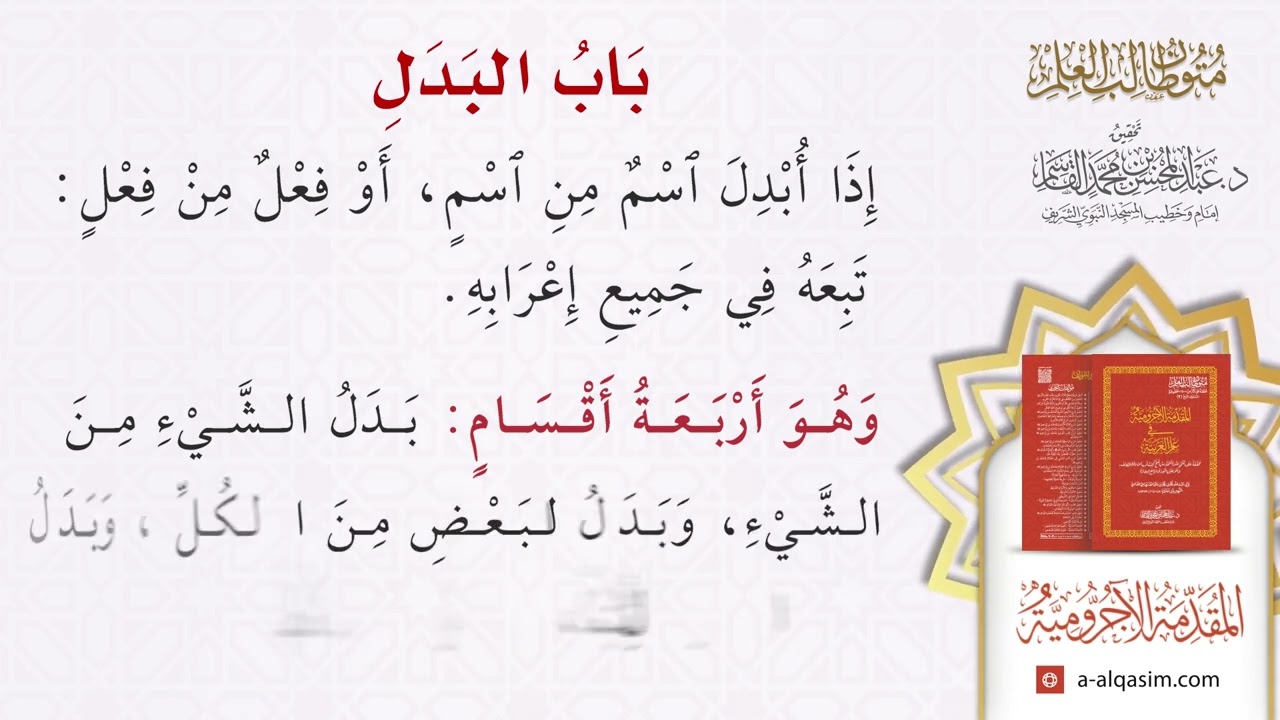 بَابُ البَدَلِ
إِذَا أُبْدِلَ ٱسْمٌ مِنِ ٱسْمٍ، أَوْ فِعْلٌ مِنْ فِعْلٍ:
تَبِعَهُ فِي جَمِيعِ إِعْرَابِهِ.
وَهُوَ أَرْبَعَةُ أَقْسَامٍ: بَدَلُ الشَّيْءِ مِنَ
الشَّيْءِ، وَبَدَلُ لبَعْضِ مِنَ ا لكُلِّ، وَبَدَلُ
مُتُون طَالِبِ العِلْمِ
تَحْقِيق
د. عَبْد المُحْسِن بْن مُحَمَّد القَاسِم
إِمَام وَخَطِيب المَسْجِد النَّبَوِي الشَّرِيف
المُقَدِّمَةُ الآجُرُّومِيَّةُ
فِي
عِلْمِ العَرَبِيَّةِ
المُقَدِّمَةُ الآجُرُّومِيَّةُ
a-alqasim.com